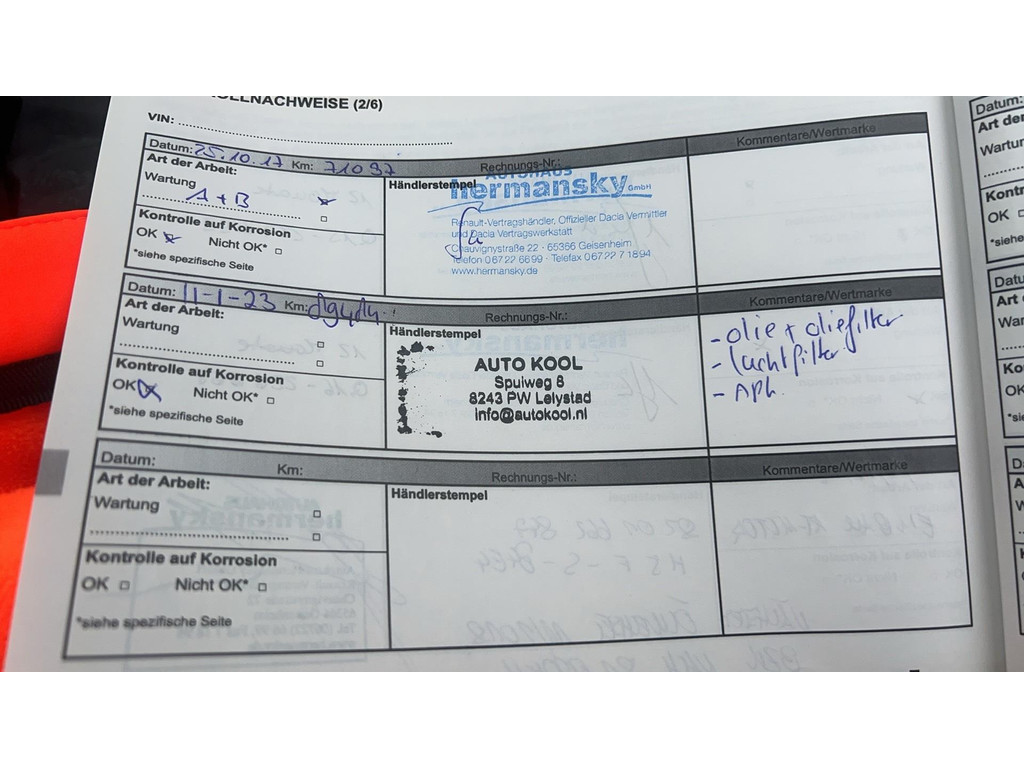 OLLNACHWEISE (2/6)
VIN:
Datum: 25.10.17 Km: 71097 Rechnungs-Nr.: Kommentare/Wertmarke
Art der Arbeit:
Wartung
A + B
Kontrolle auf Korrosion
OK Nicht OK*
*siehe spezifische Seite
Händlerstempel
AUTOHAUS
hermansky GmbH
Renault-Vertragshändler, Offizieller Dacia Vermittler
und Dacia Vertragswerkstatt
Chauvignystraße 22 · 65366 Geisenheim
Telefon 06722 6699 · Telefax 06722 71894
www.hermansky.de
Datum: 11-1-23 Km: Rechnungs-Nr.: Kommentare/Wertmarke
Art der Arbeit:
Wartung
Kontrolle auf Korrosion
OK Nicht OK*
*siehe spezifische Seite
Händlerstempel
AUTO KOOL
Spuiweg 8
8243 PW Lelystad
info@autokool.nl
- olie + oliefilter
- luchtfilter
- APK.
Datum: Km: Rechnungs-Nr.: Kommentare/Wertmarke
Art der Arbeit:
Wartung
Kontrolle auf Korrosion
OK Nicht OK*
*siehe spezifische Seite
Händlerstempel
Datum:
Art der